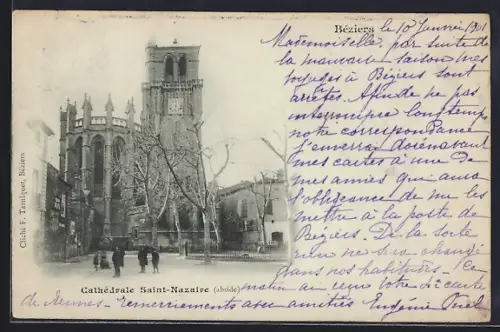 Béziers
le 10 Janvier 1901
Mademoiselle, par suite de
la mauvaise saison mes
voyages à Béziers sont
arrêtés. Afin de ne pas
interrompre longtemps
notre correspondance
j'enverrai dorénavant
mes cartes à une de
mes amies qui aura
l'obligeance de me les
mettre à la poste de
Béziers. De la sorte
rien ne sera changé
dans nos habitudes. Ce
matin ai reçu votre carte
de Rennes - Remerciements avec amitiés Eugénie
Cathédrale Saint-Nazaire (abside)
Cliché F. Tamiquet, Béziers